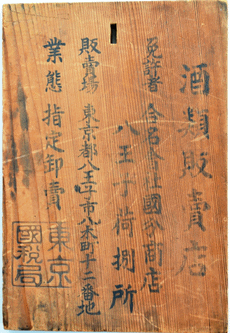 酒類販賣店
免許者 合名会社國分商店
八王子荷捌所
販賣場 東京都八王子市八木町十二番地
業態指定卸賣
東京
國税局